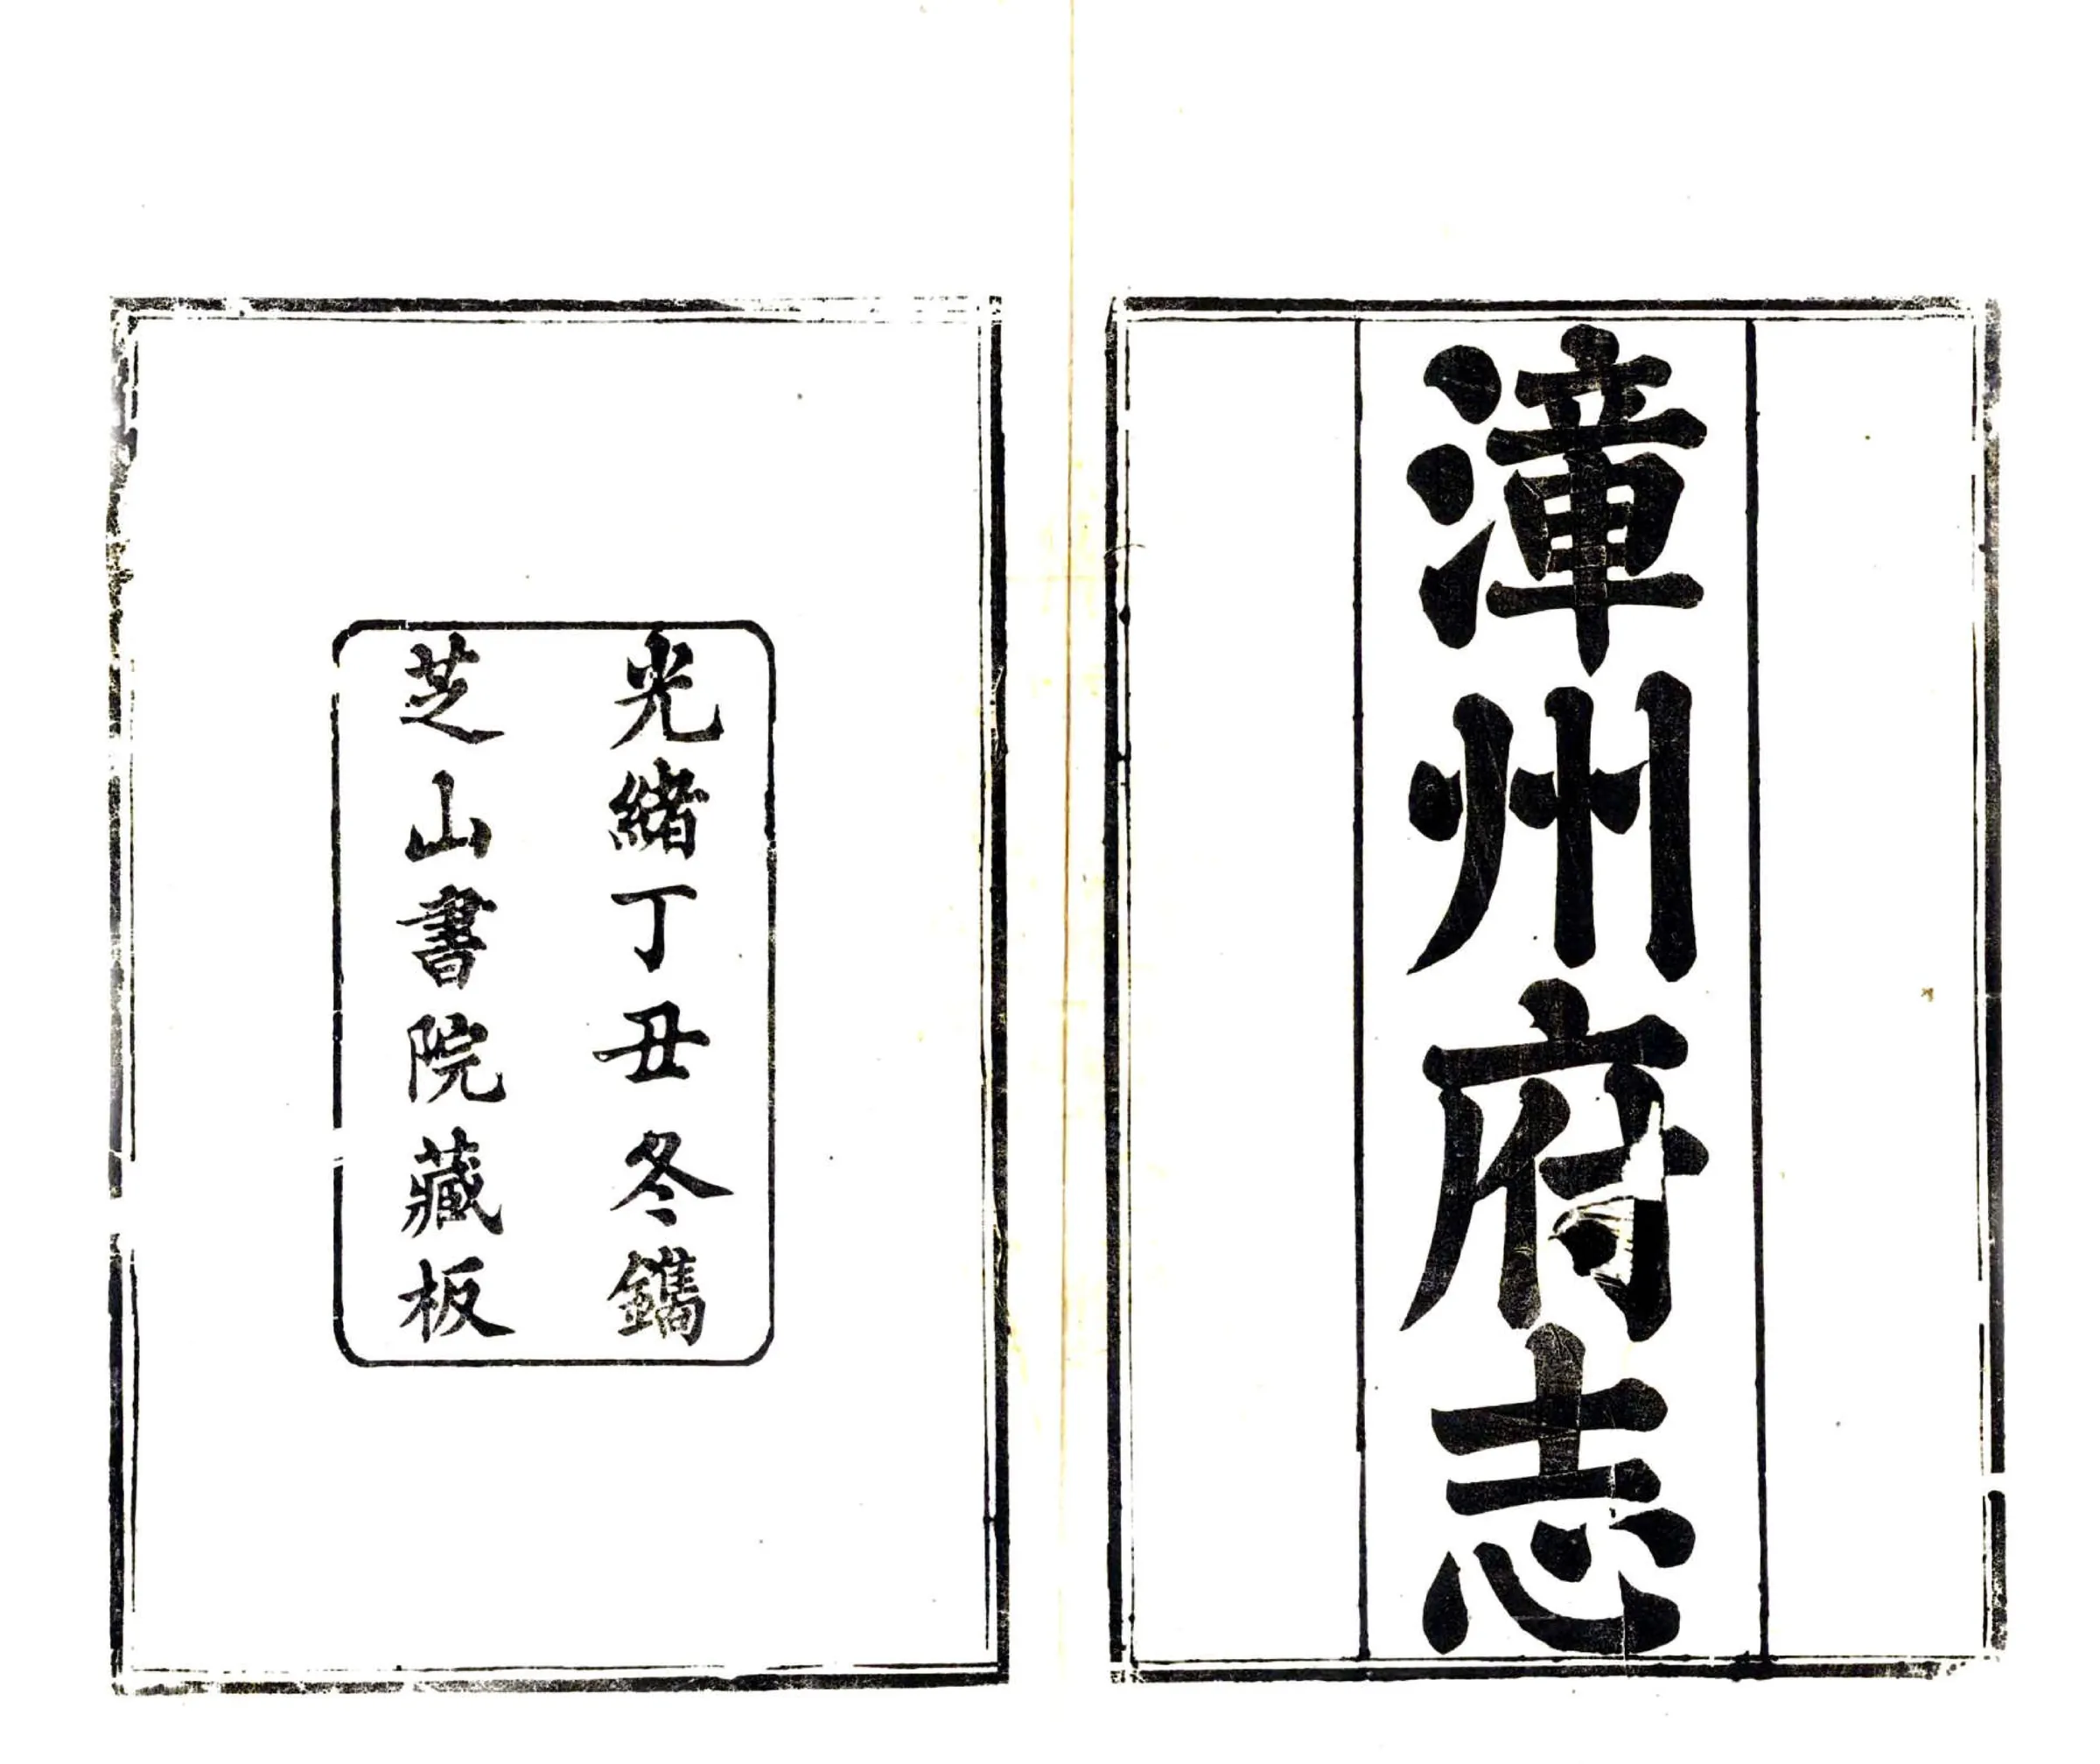 漳州府志
光緒丁丑冬鐫
芝山書院藏板